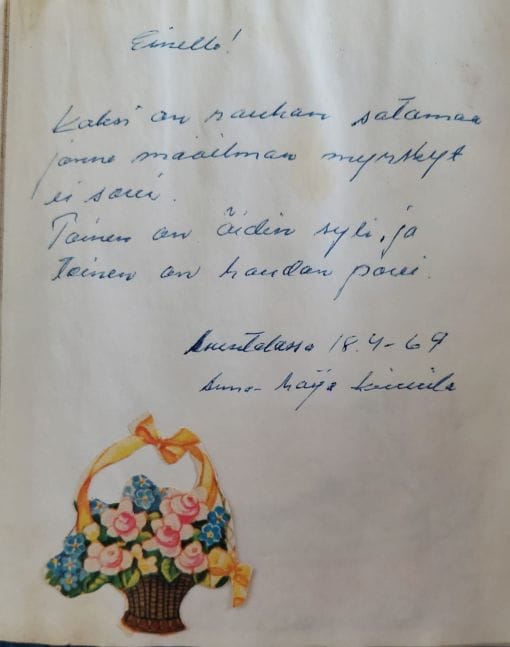 Kaksi on rauhan satamaa
jonne maailman myrskyt
ei sovi.
Toinen on äidin syli, ja
toinen on haudan povi.
18.4-69
Anna-Maija